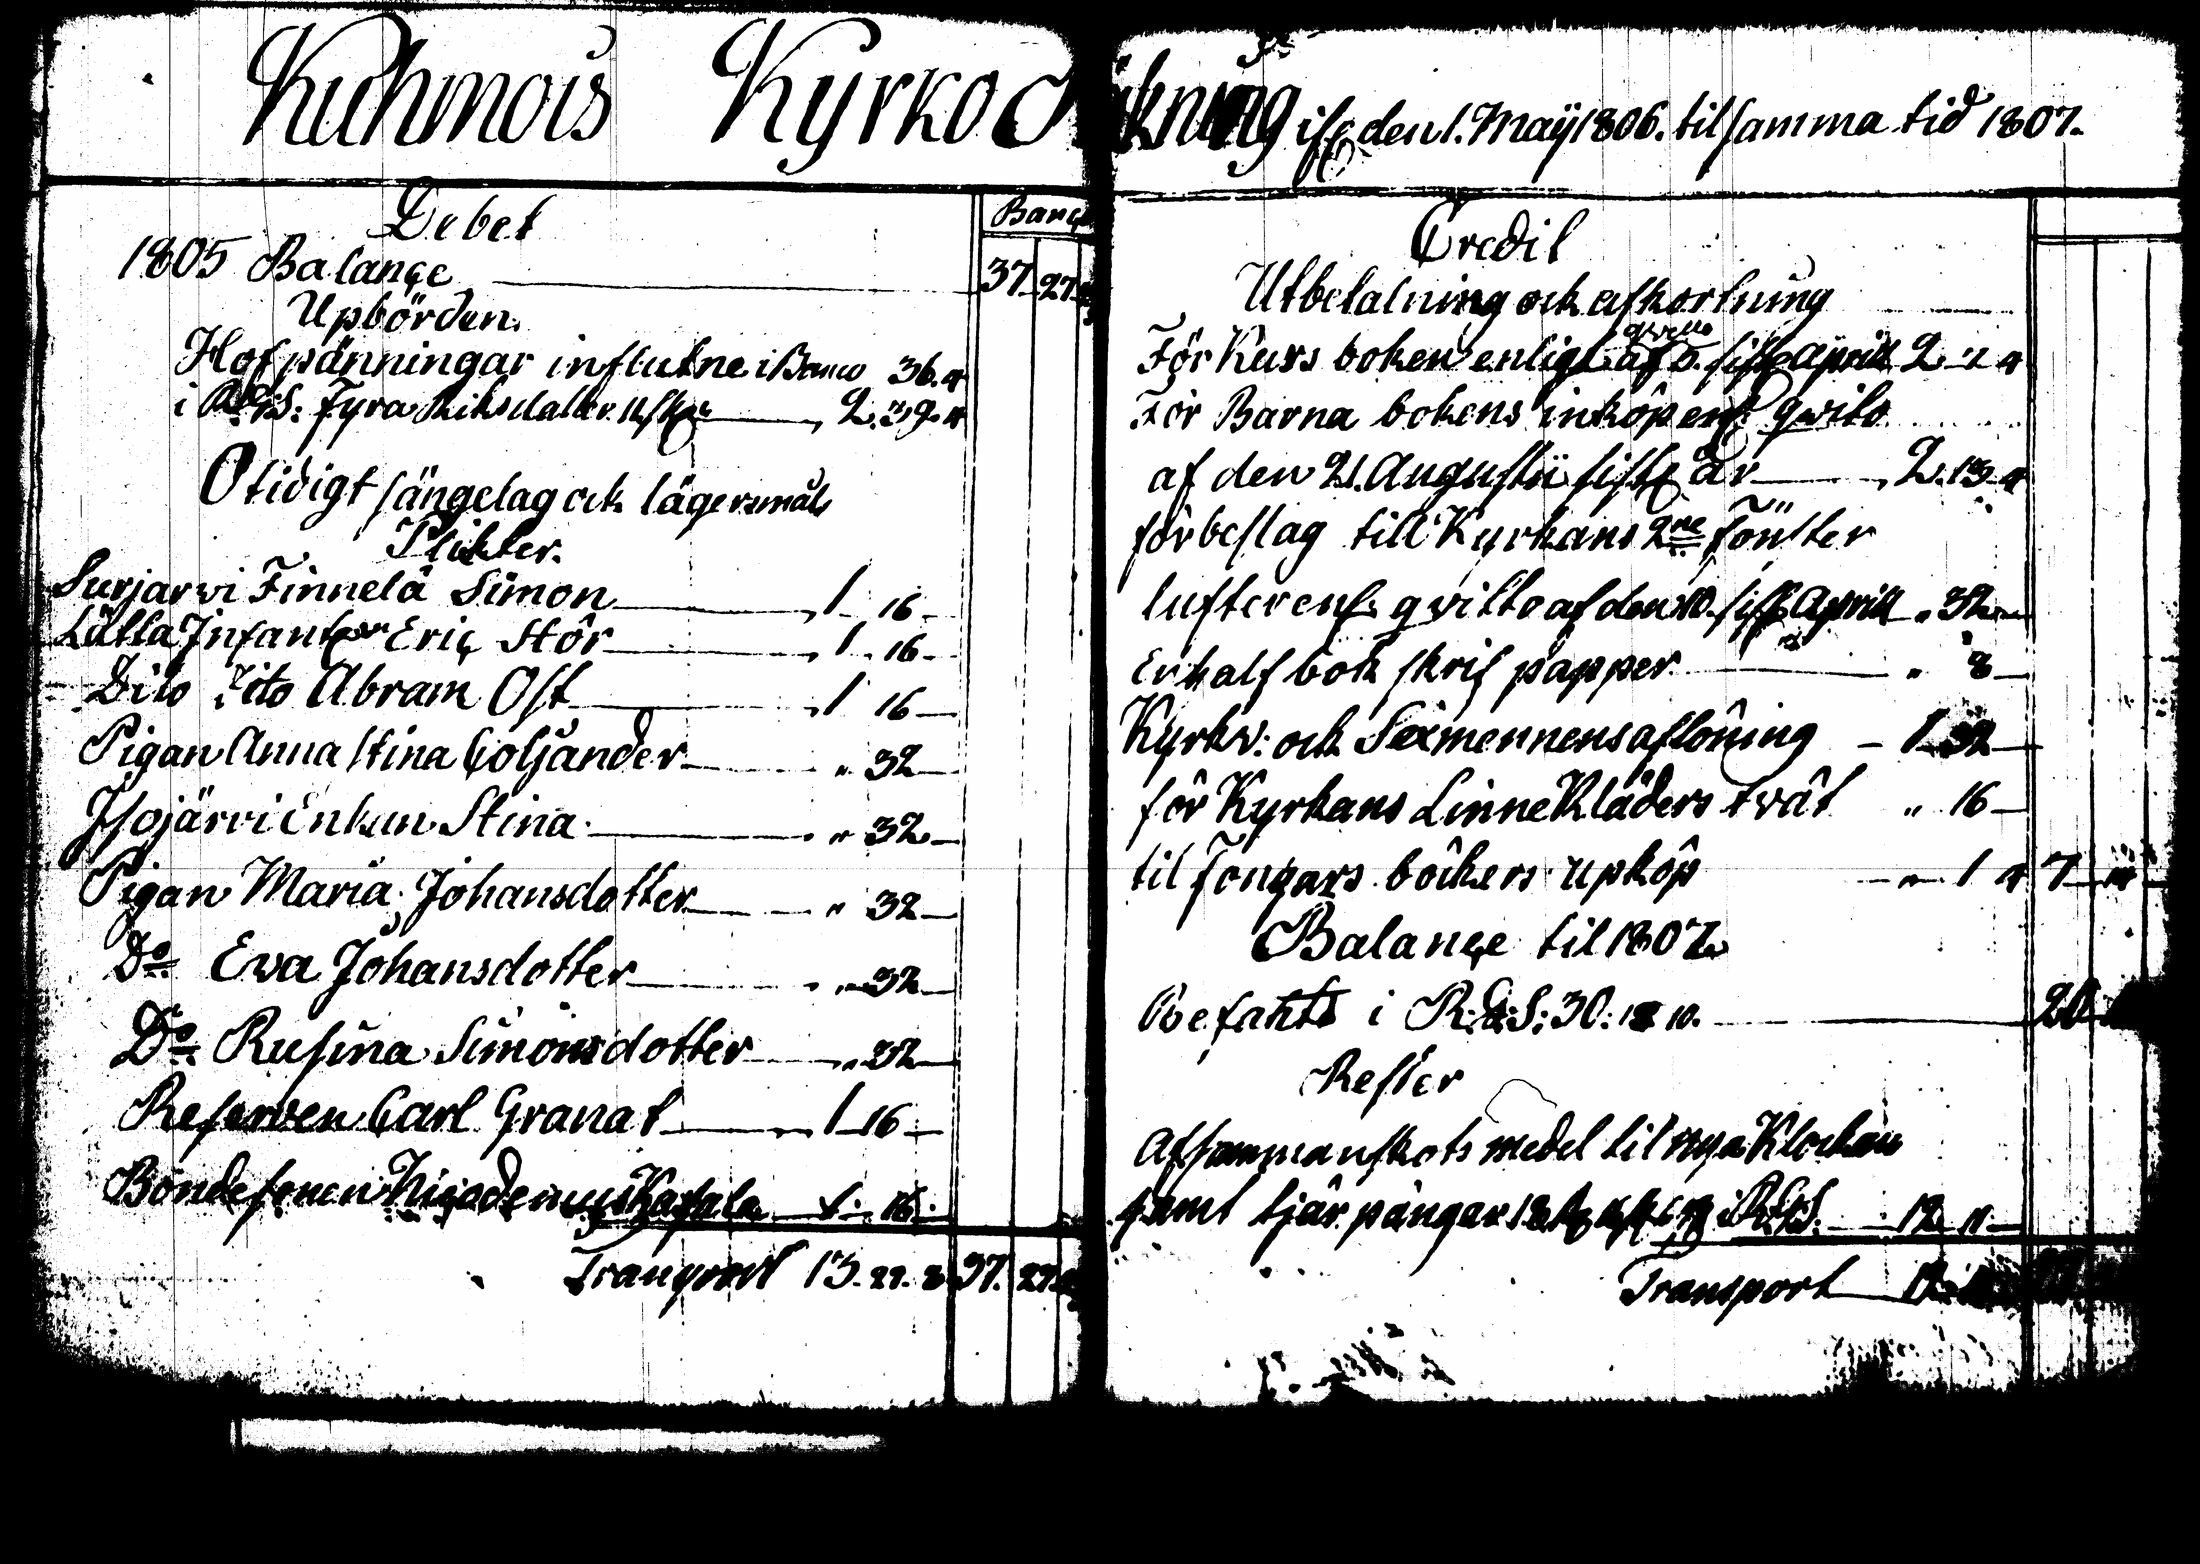 Kuhmois Kyrko Räkning ifr. den 1. Maÿ 1806. til samma tid 1807.
Debet
Banco
1805 Balançe 37 27
Upbörden.
Hofpänningar influtne i Banco 36. 4
i R.G.S. Fyra Riksdaler 2. 39. 4
Otidigt sängelag och lägersmåls
Plikter.
Surjarvi Finnelä Simon 1 16
Lätta Infant Eriç Stör 1 16
Dito Dito Abram Ost 1 16
Pigan Anna Stina Goljander " 32
Isojärvi Enkan Stina " 32
Pigan Maria Johansdotter " 32
Do Ewa Johansdotter " 32
Do Rusina Simonsdotter " 32
Reserven Carl Granat 1 16
Bondesonen 1. 16.
Transport 13. 22. 8 37. 27
Credit
Utbetalning och afkortning
För Kurs boken enligt qvitto af d. 5. sistl. Aprill 2 " 4
För Barna bokens inköp enl. qwito
af den 21. Augustii sistl. år 2. 13. 4
för beslag till Kyrkans 2ne Fönster
lufter enl. qvitto af den 10. sistl. Aprill " 32
En half bok skrif papper " 8
Kyrkv: och Sexmennens aflöning 1 32
för Kyrkans Linne Kläders tvät " 16
til Fongars böckers upköp " 1 4 7
Balançe til 1807
Besants i R:G:S: 30: 10. 20
Rester
Af sammanskots medel til nya Klockan
samt tjär pängar i R.G.S. 12 11
Transport